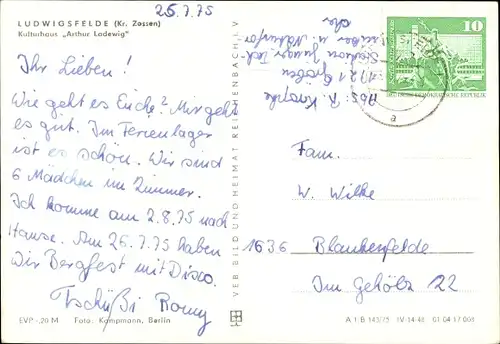 25.7.75
LUDWIGSFELDE (Kr. Zossen)
Kulturhaus „Arthur Ladewig"
Ihr Lieben!
Wie geht es Euch? Mir geht
es gut. Im Ferienlager
ist es schön. Wir sind
6 Mädchen im Zimmer.
Ich komme am 2.8.75 nach
Hause. Am 26.7.75 haben
wir Bergfest mit Disco.
Tschüßi Romy
EVP -,20 M Foto: Kampmann, Berlin
VEB BILD UND HEIMAT REICHENBACH I. V
Abs: R.
1721 Gröben
Station Junger Tech
niker u. Naturfor
scher
10
DEUTSCHE DEMOKRATISCHE REPUBLIK
a
Fam.
W. Wilke
1636 Blankenfelde
Im Gehölz 22
A 1 B 143/75 IV-14-48 01 04 17 004